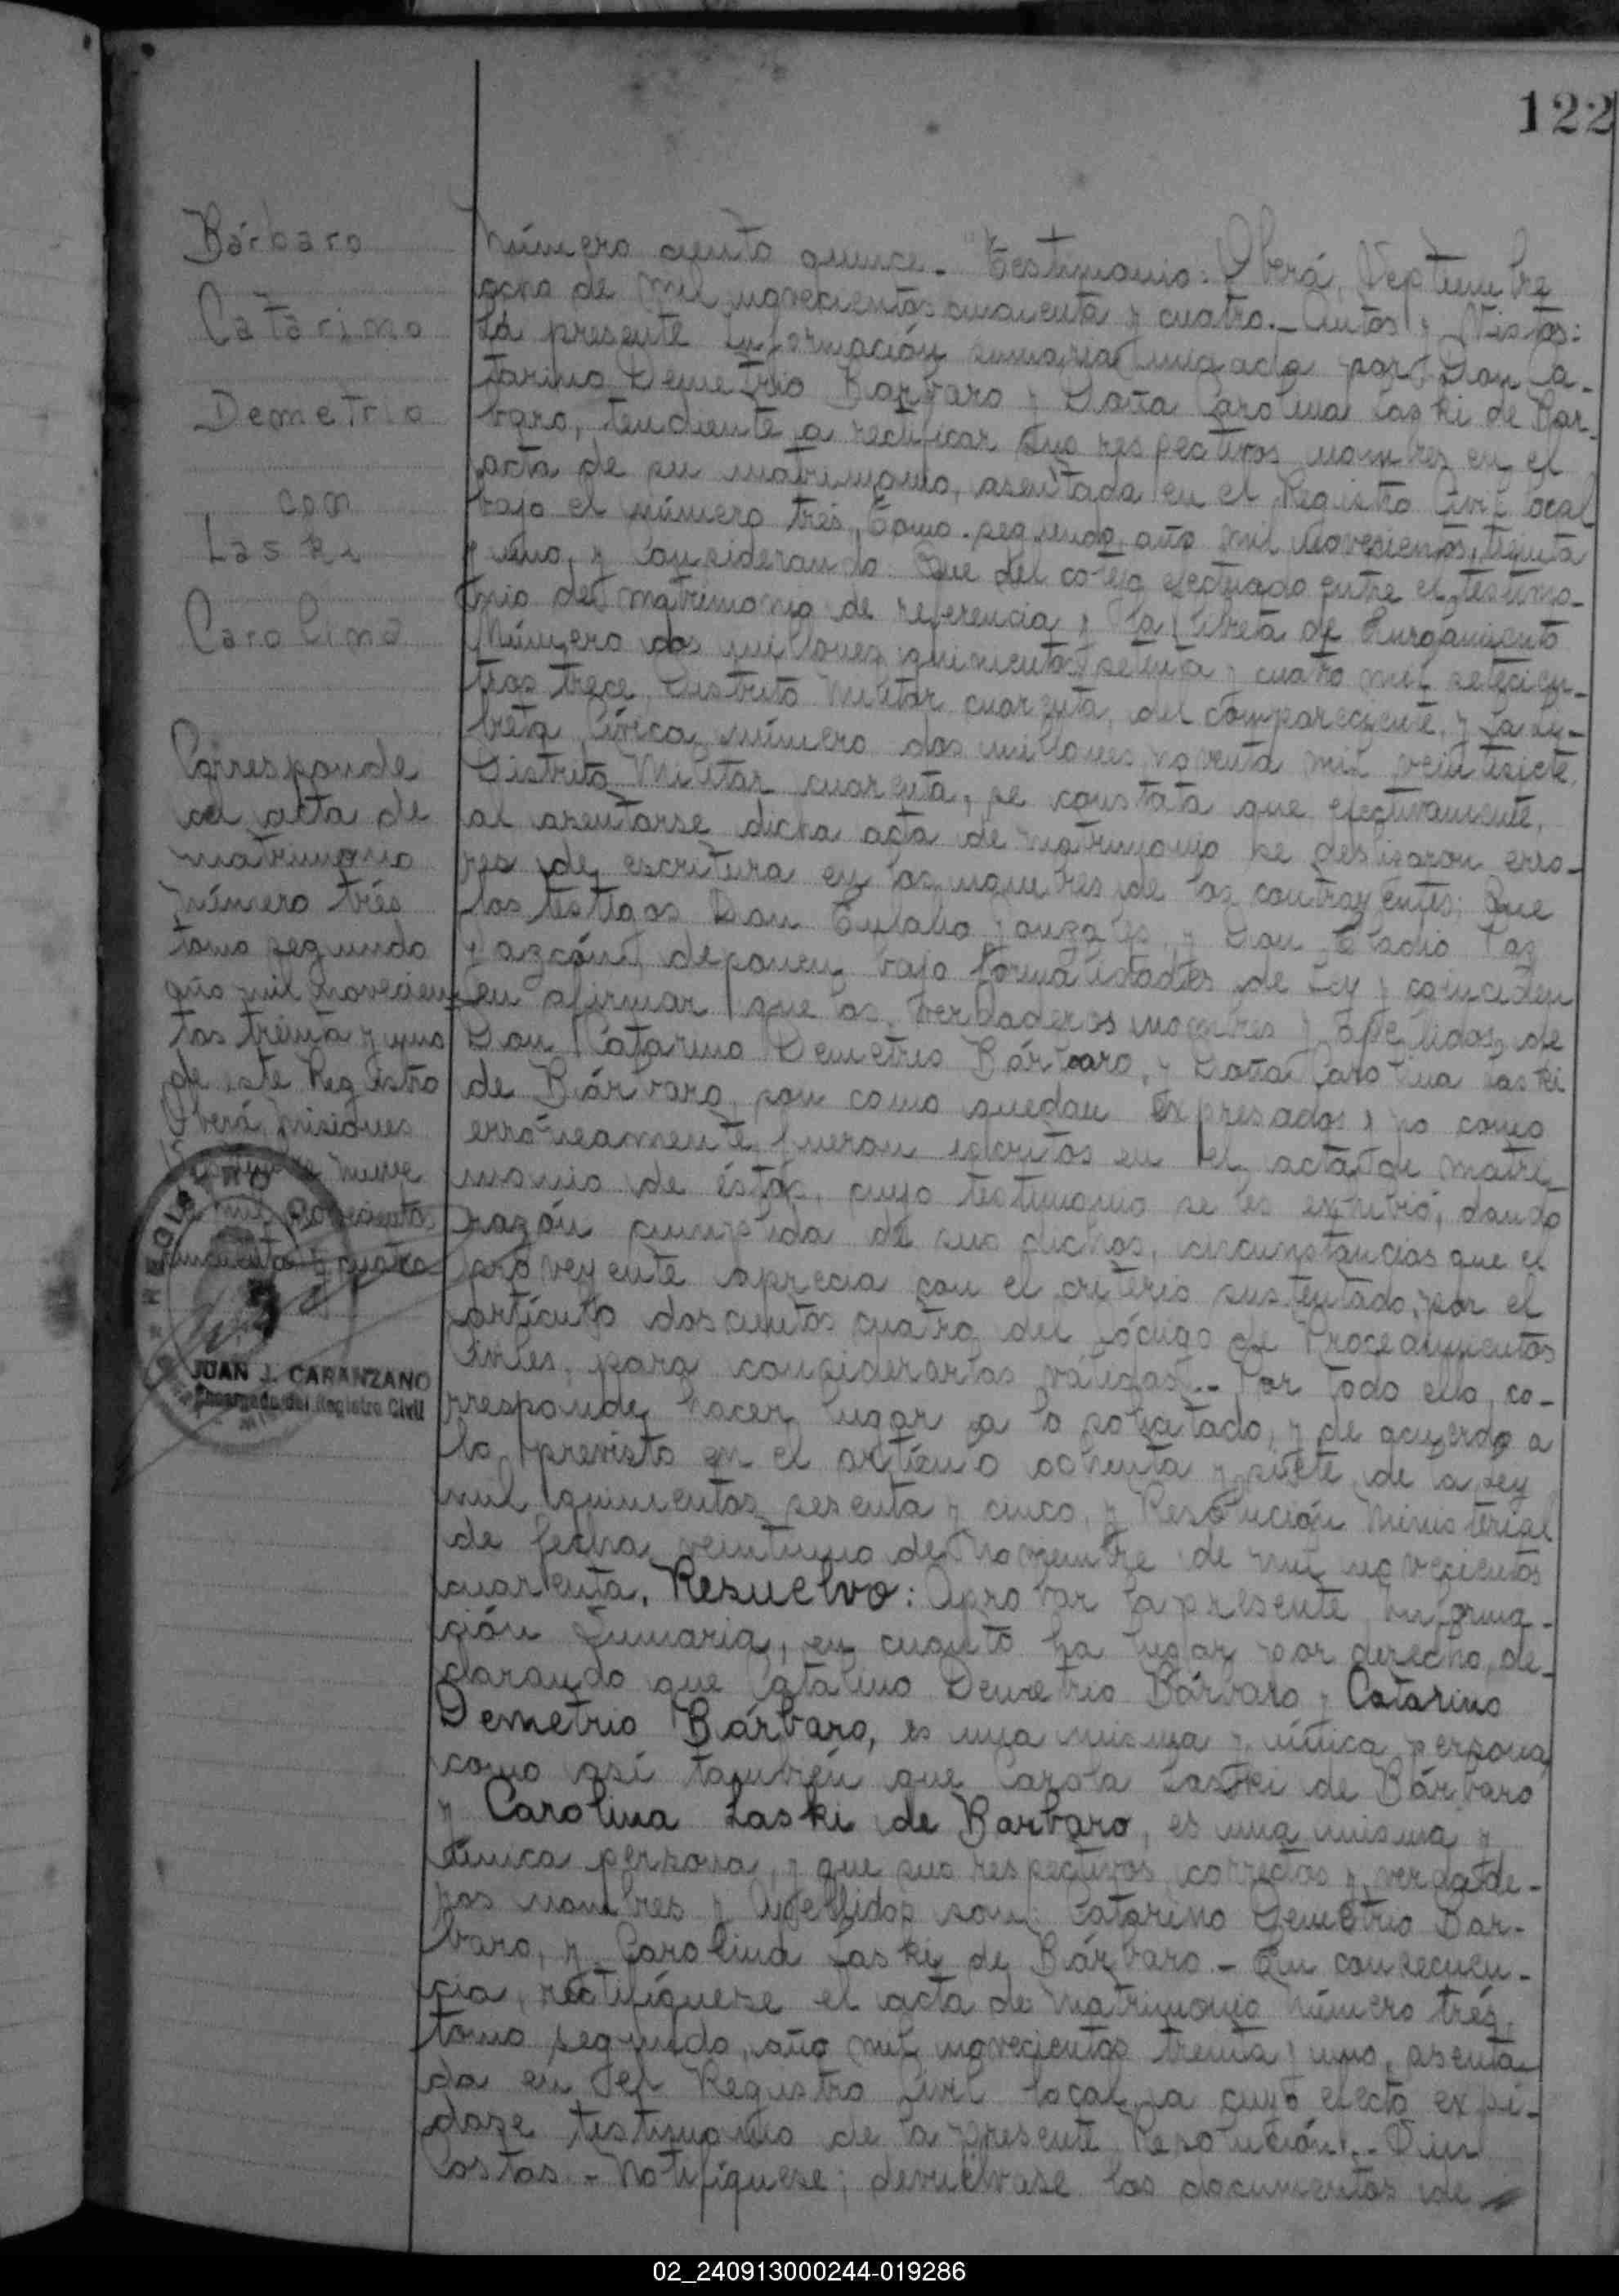 122
Bárbaro
Catarino
Demetrio
con
Laski
Carolina
Corresponde
al acta de
matrimonio
número trés
tomo segundo
año mil novecien-
tos treinta y uno
de este Registro
Oberá, Misiones
Septiembre nueve
mil novecientos
cuarenta y cuatro
JUAN J. CARANZANO
Encargado del Registro Civil
Número ciento quince.- Testimonio: Oberá, Septiembre
ocho de mil novecientos cuarenta y cuatro.- Autos y Vistos:
La presente Información sumaria iniciada por Don Ca-
tarino Demetrio Bárbaro y Doña Carolina Laski de Bár-
baro, tendiente a rectificar sus respectivos nombres en el
acta de su matrimonio, asentada en el Registro Civil local
bajo el número trés, tomo segundo, año mil novecientos treinta
y uno, y Considerando: Que del cotejo efectuado entre el testimo-
nio del matrimonio de referencia y la libreta de Enrolamiento
Número dos millones quinientos setenta y cuatro mil setecien-
tos trece, Distrito Militar cuarenta, del compareciente, y la Li-
breta Cívica número dos millones noventa mil veintisiete,
Distrito Militar cuarenta, se constata que efectivamente,
al asentarse dicha acta de matrimonio se deslizaron erro-
res de escritura en los nombres de los contrayentes; Que
los testigos Don Eulalio Gonzales, y Don Eladio
deponen bajo formalidades de Ley y coinciden
en afirmar que los verdaderos nombres y apellidos de
Don Catarino Demetrio Bárbaro, y Doña Carolina Laski
de Bárbaro, son como quedan expresados y no como
erróneamente fueron escritos en el acta de matri-
monio de éstos, cuyo testimonio se les exhibió, dando
razón cumplida de sus dichos, circunstancias que el
proveyente aprecia con el criterio sustentado por el
artículo doscientos cuatro del Código de Procedimientos
Civiles, para considerarlas válidas.- Por todo ello, co-
rresponde hacer lugar a lo solicitado, y de acuerdo a
lo previsto en el artículo ochenta y siete de la Ley
mil quinientos sesenta y cinco, y Resolución Ministerial
de fecha veintiuno de Noviembre de mil novecientos
cuarenta, Resuelvo: Aprobar la presente Informa-
ción Sumaria, en cuanto ha lugar por derecho, de-
clarando que Catalino Demetrio Bárbaro y Catarino
Demetrio Bárbaro, es una misma y única persona,
como así también que Carola Laski de Bárbaro
y Carolina Laski de Barbaro, es una misma y
única persona, y que sus respectivos, correctos y verdade-
ros nombres y Apellidos son: Catarino Demetrio Bár-
baro, y Carolina Laski de Bárbaro.- En consecuen-
cia, rectifíquese el acta de Matrimonio Número trés,
tomo segundo, año mil novecientos treinta y uno, asenta-
da en el Registro Civil local, a cuyo efecto expí-
dase testimonio de la presente Resolución.- Sin
Costas.- Notifíquese; devuélvase los documentos de
02_240913000244-019286